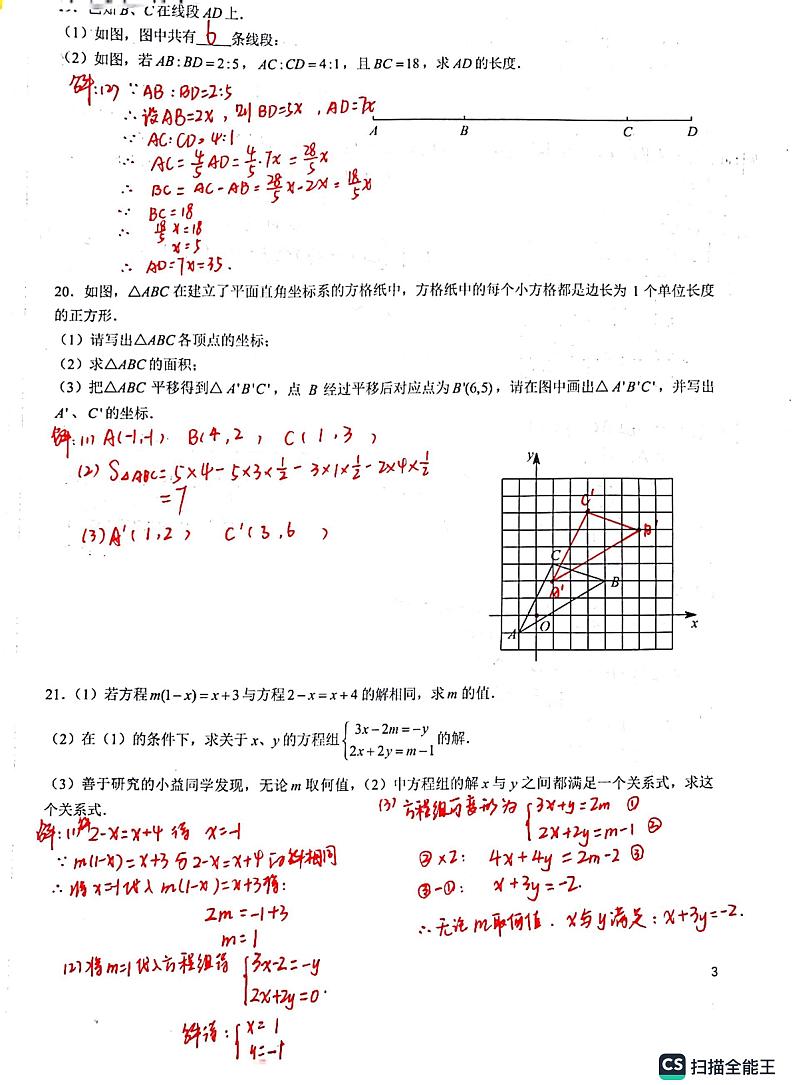 19. 已知 B、C 在线段 AD 上.
(1) 如图，图中共有 6 条线段:
(2) 如图，若 AB:BD=2:5，AC:CD=4:1，且 BC=18，求 AD 的长度.
解:(2) ∵ AB:BD=2:5
∴ 设AB=2x，则BD=5x，AD=7x
A B C D
∵ AC:CD=4:1
∴ AC=4/5AD=4/5·7x=28/5x
∴ BC=AC-AB=28/5x-2x=18/5x
∵ BC=18
∴ 18/5x=18
x=5
∴ AD=7x=35.
20. 如图，△ABC 在建立了平面直角坐标系的方格纸中，方格纸中的每个小方格都是边长为 1 个单位长度
的正方形.
(1) 请写出△ABC 各顶点的坐标;
(2) 求△ABC 的面积;
(3) 把△ABC 平移得到△A'B'C'，点 B 经过平移后对应点为 B'(6,5)，请在图中画出△A'B'C'，并写出
A'、C' 的坐标.
解:(1) A(-1,-1) B(4,2) C(1,3)
(2) S△ABC=5×4-5×3×1/2-3×1×1/2-2×4×1/2
=7
(3) A'(1,2) C'(3,6)
y
C'
B'
C
A'
B
A
O
x
21. (1) 若方程 m(1-x)=x+3 与方程 2-x=x+4 的解相同，求 m 的值.
(2) 在（1）的条件下，求关于 x、y 的方程组 {3x-2m=-y 2x+2y=m-1 的解.
(3) 善于研究的小益同学发现，无论 m 取何值，(2) 中方程组的解 x 与 y 之间都满足一个关系式，求这
个关系式.
解:(1) 解2-x=x+4 得 x=-1
∵ m(1-x)=x+3与2-x=x+4的解相同
∴ 将x=-1代入 m(1-x)=x+3得:
2m=-1+3
m=1
(2) 将m=1代入方程组得 {3x-2=-y
2x+2y=0.
解得: {x=1
y=-1
(3) 方程组可变形为 {3x+y=2m ①
2x+2y=m-1 ②
②×2: 4x+4y=2m-2 ③
③-①: x+3y=-2.
∴无论m取何值. x与y满足: x+3y=-2.
3
CS 扫描全能王